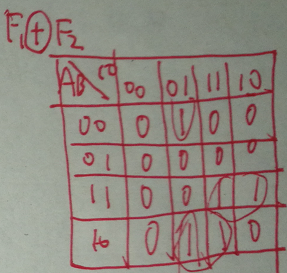 F₁⊕F₂
AB\CD 00 01 11 10
00 0 1 0 0
01 0 0 0 0
11 0 0 1 1
10 0 1 1 0